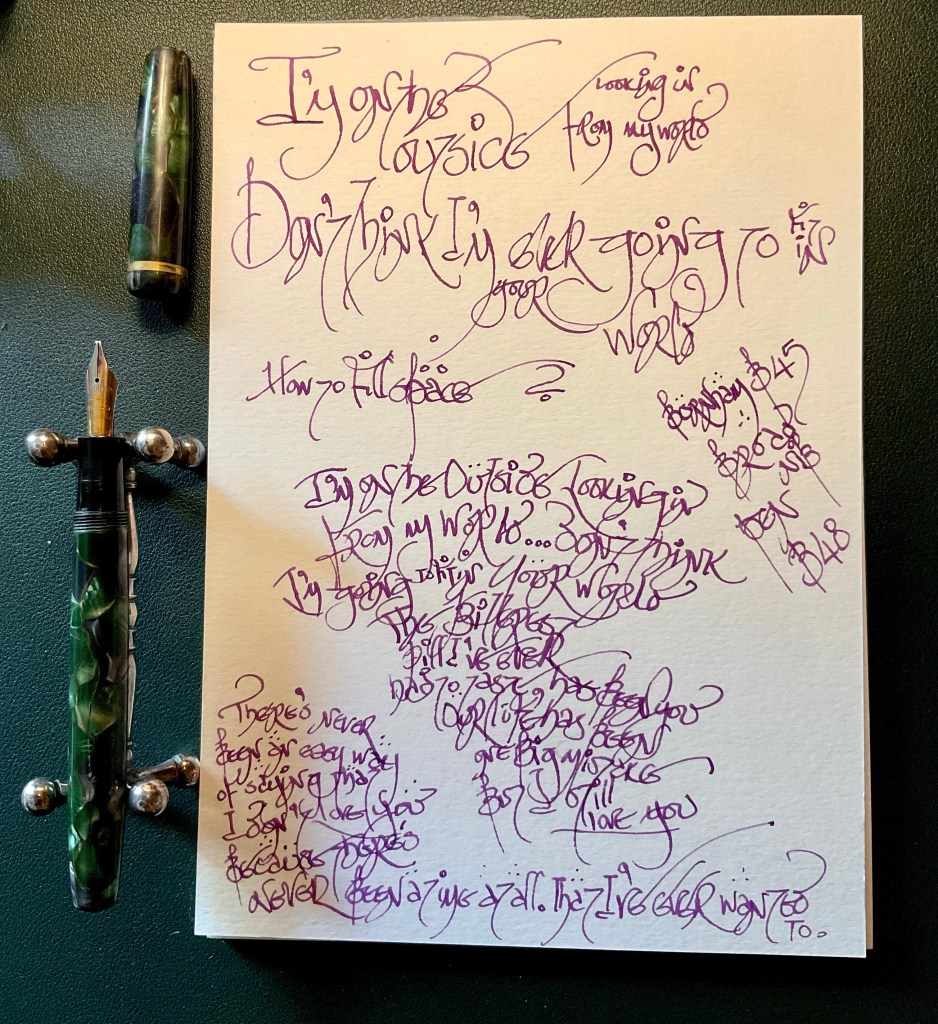 I'm on the
outside
looking in
from my world
Don't think I'm ever going to fit in
your
world
How to fill space ?
Burnham B45
Broad
Nib
Pen
B48
I'm on the Outside looking in
from my world... Don't think
I'm going to fit in your world
The Bitterest
Pill I've ever
had to taste has been you
Our life has been
one big mistake
But I still
love you
There's never
been an easy way
of saying that
I don't love you
Because there's
never been a time at all. That I've ever wanted
to.